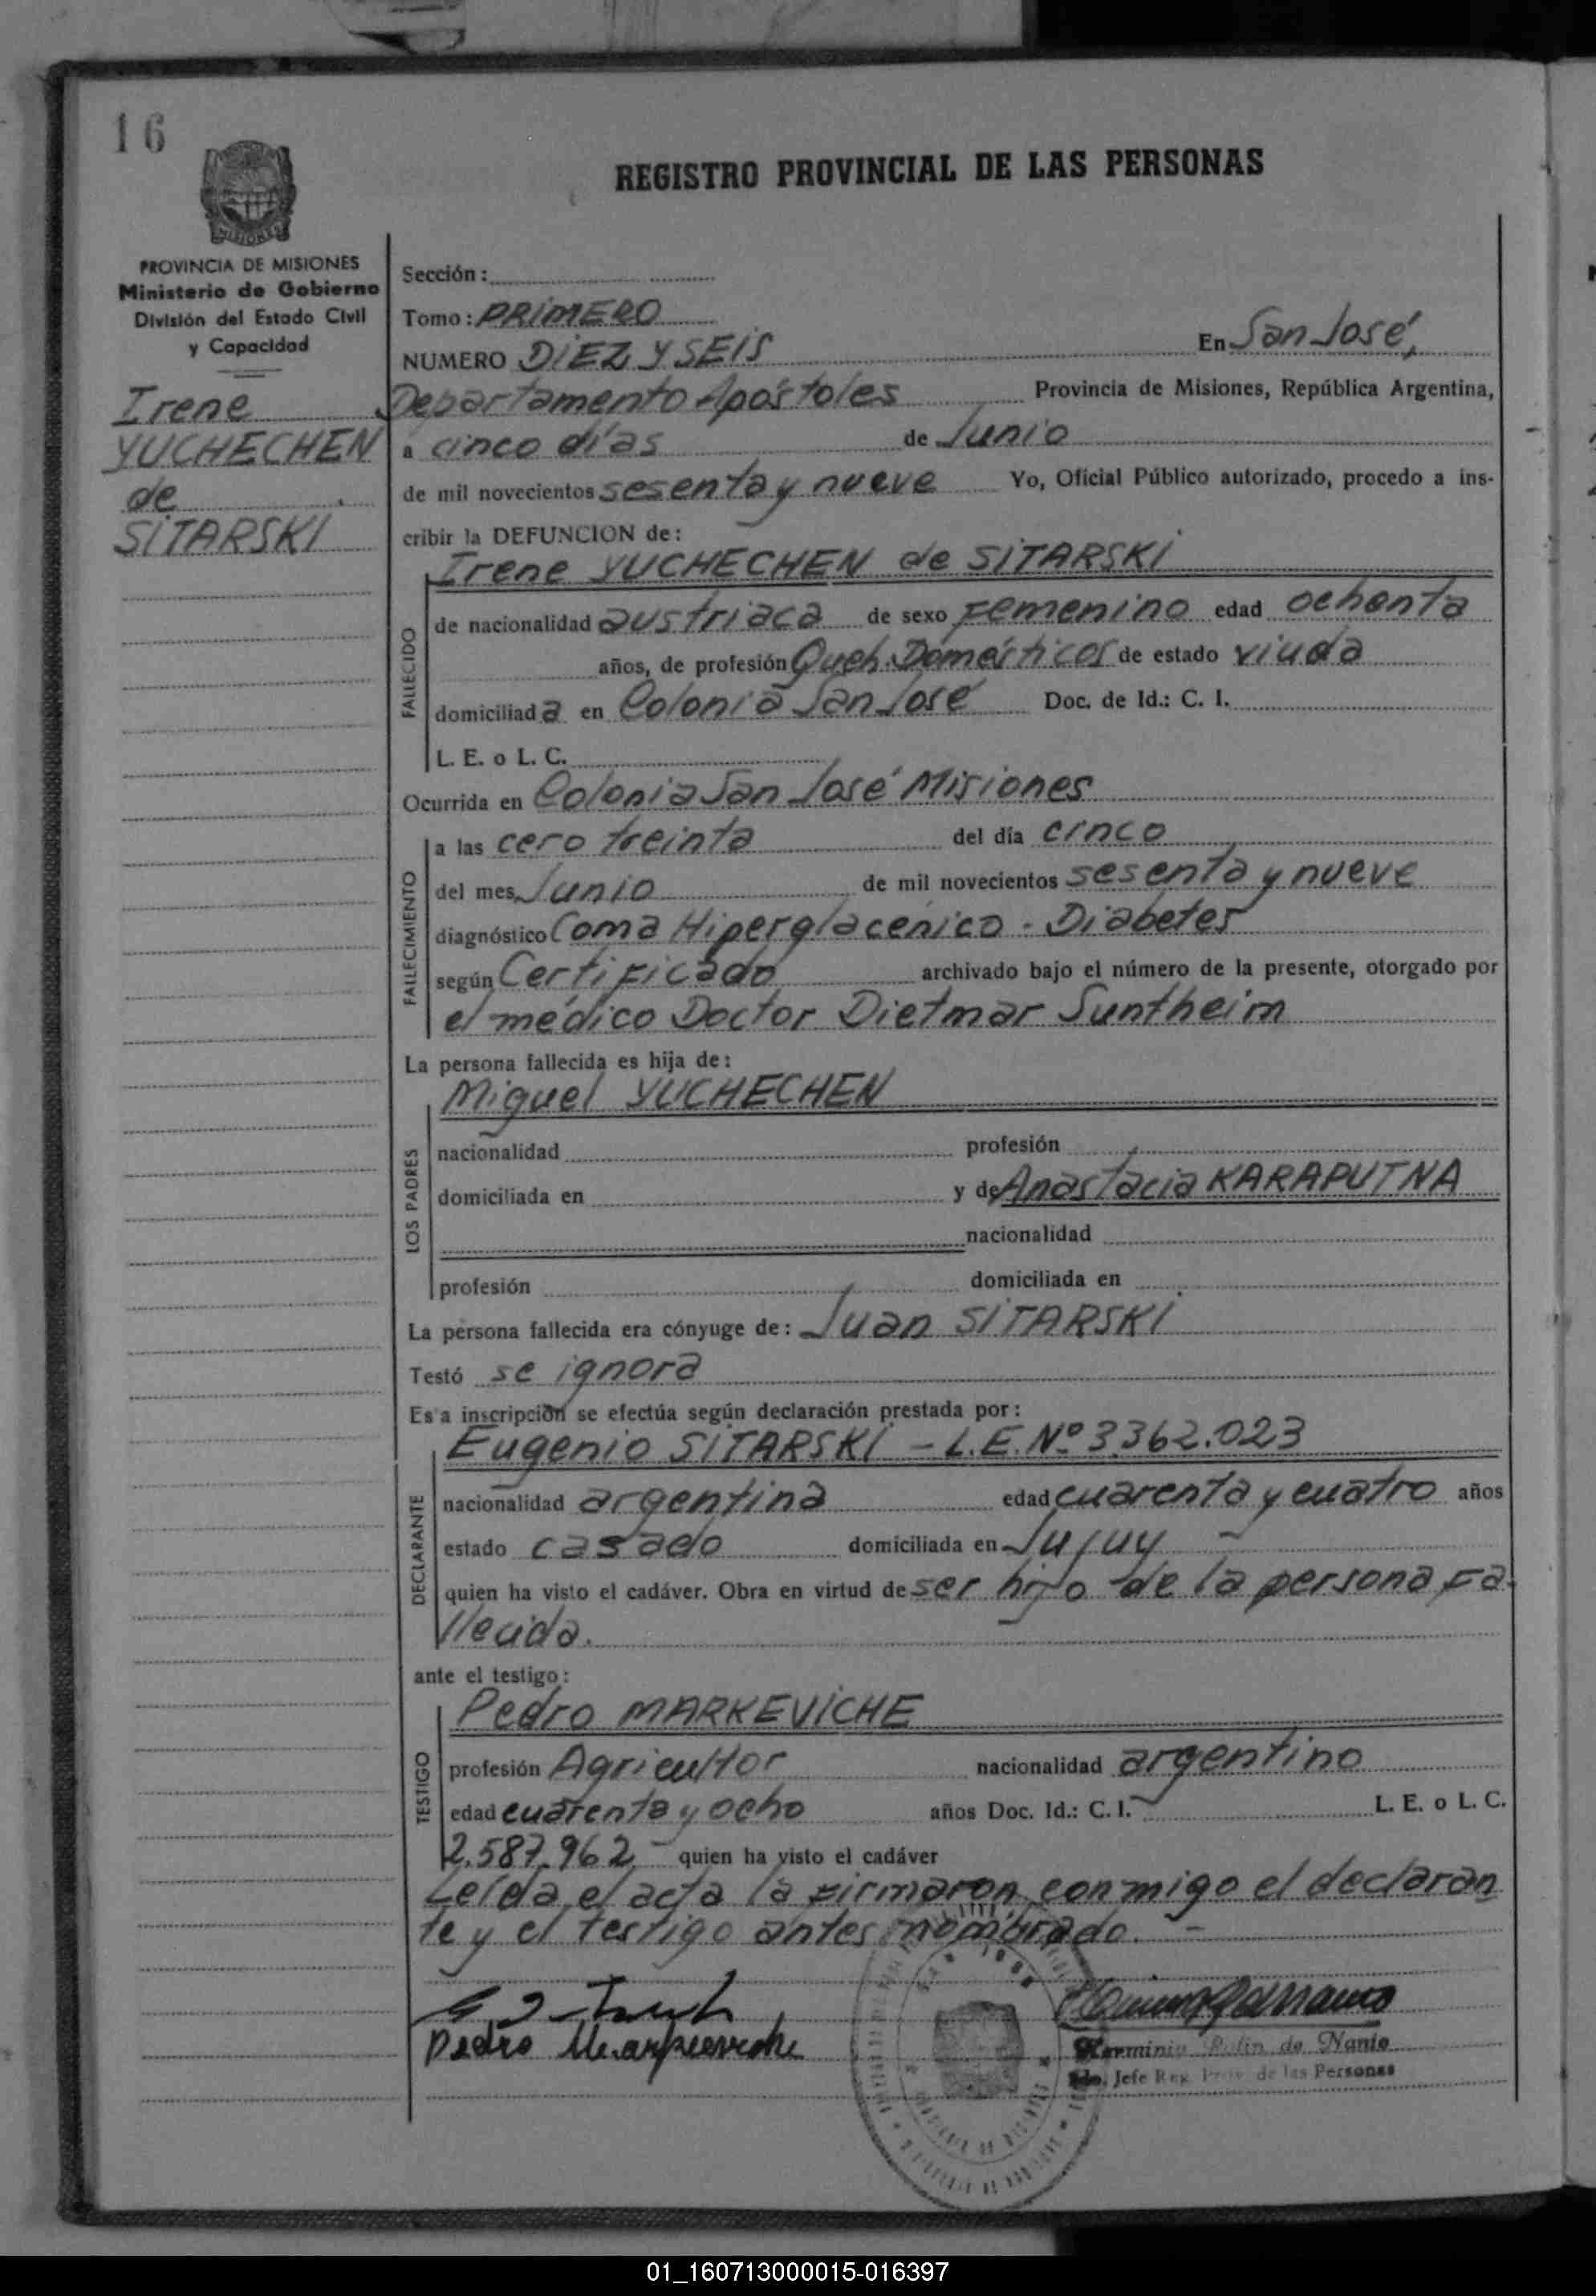 16
REGISTRO PROVINCIAL DE LAS PERSONAS
MISIONES
PROVINCIA DE MISIONES
Ministerio de Gobierno
División del Estado Civil
y Capacidad
Irene
YUCHECHEN
de
SITARSKI
Sección:
Tomo: PRIMERO
NUMERO DIEZ Y SEIS En San José,
Departamento Apóstoles Provincia de Misiones, República Argentina,
a cinco días de Junio
de mil novecientos sesenta y nueve Yo, Oficial Público autorizado, procedo a ins-
cribir la DEFUNCION de:
Irene YUCHECHEN de SITARSKI
FALLECIDO
de nacionalidad austriaca de sexo Femenino edad ochenta
años, de profesión Queh. Domésticos de estado viuda
domiciliada en Colonia San José Doc. de Id.: C. I.
L. E. o L. C.
Ocurrida en Colonia San José Misiones
FALLECIMIENTO
a las cero treinta del día cinco
del mes Junio de mil novecientos sesenta y nueve
diagnóstico Coma Hiperglacénico - Diabetes
según Certificado archivado bajo el número de la presente, otorgado por
el médico Doctor Dietmar Suntheim
La persona fallecida es hija de:
Miguel YUCHECHEN
LOS PADRES
nacionalidad profesión
domiciliada en y de Anastacia KARAPUTNA
nacionalidad
profesión domiciliada en
La persona fallecida era cónyuge de: Juan SITARSKI
Testó se ignora
Esa inscripción se efectúa según declaración prestada por:
Eugenio SITARSKI - L.E. Nº 3.362.023
DECLARANTE
nacionalidad argentina edad cuarenta y cuatro años
estado casado domiciliada en Jujuy
quien ha visto el cadáver. Obra en virtud de ser hijo de la persona fa-
llecida.
ante el testigo:
Pedro MARKEVICHE
TESTIGO
profesión Agricultor nacionalidad argentino
edad cuarenta y ocho años Doc. Id.: C. I. L. E. o L. C.
2.587.962 quien ha visto el cadáver
Leída el acta la firmaron conmigo el declaran
te y el testigo antes nombrado. -
Pedro Markeviche
Herminia Rolin de Nanio
Jefe Reg. Prov. de las Personas
01_160713000015-016397